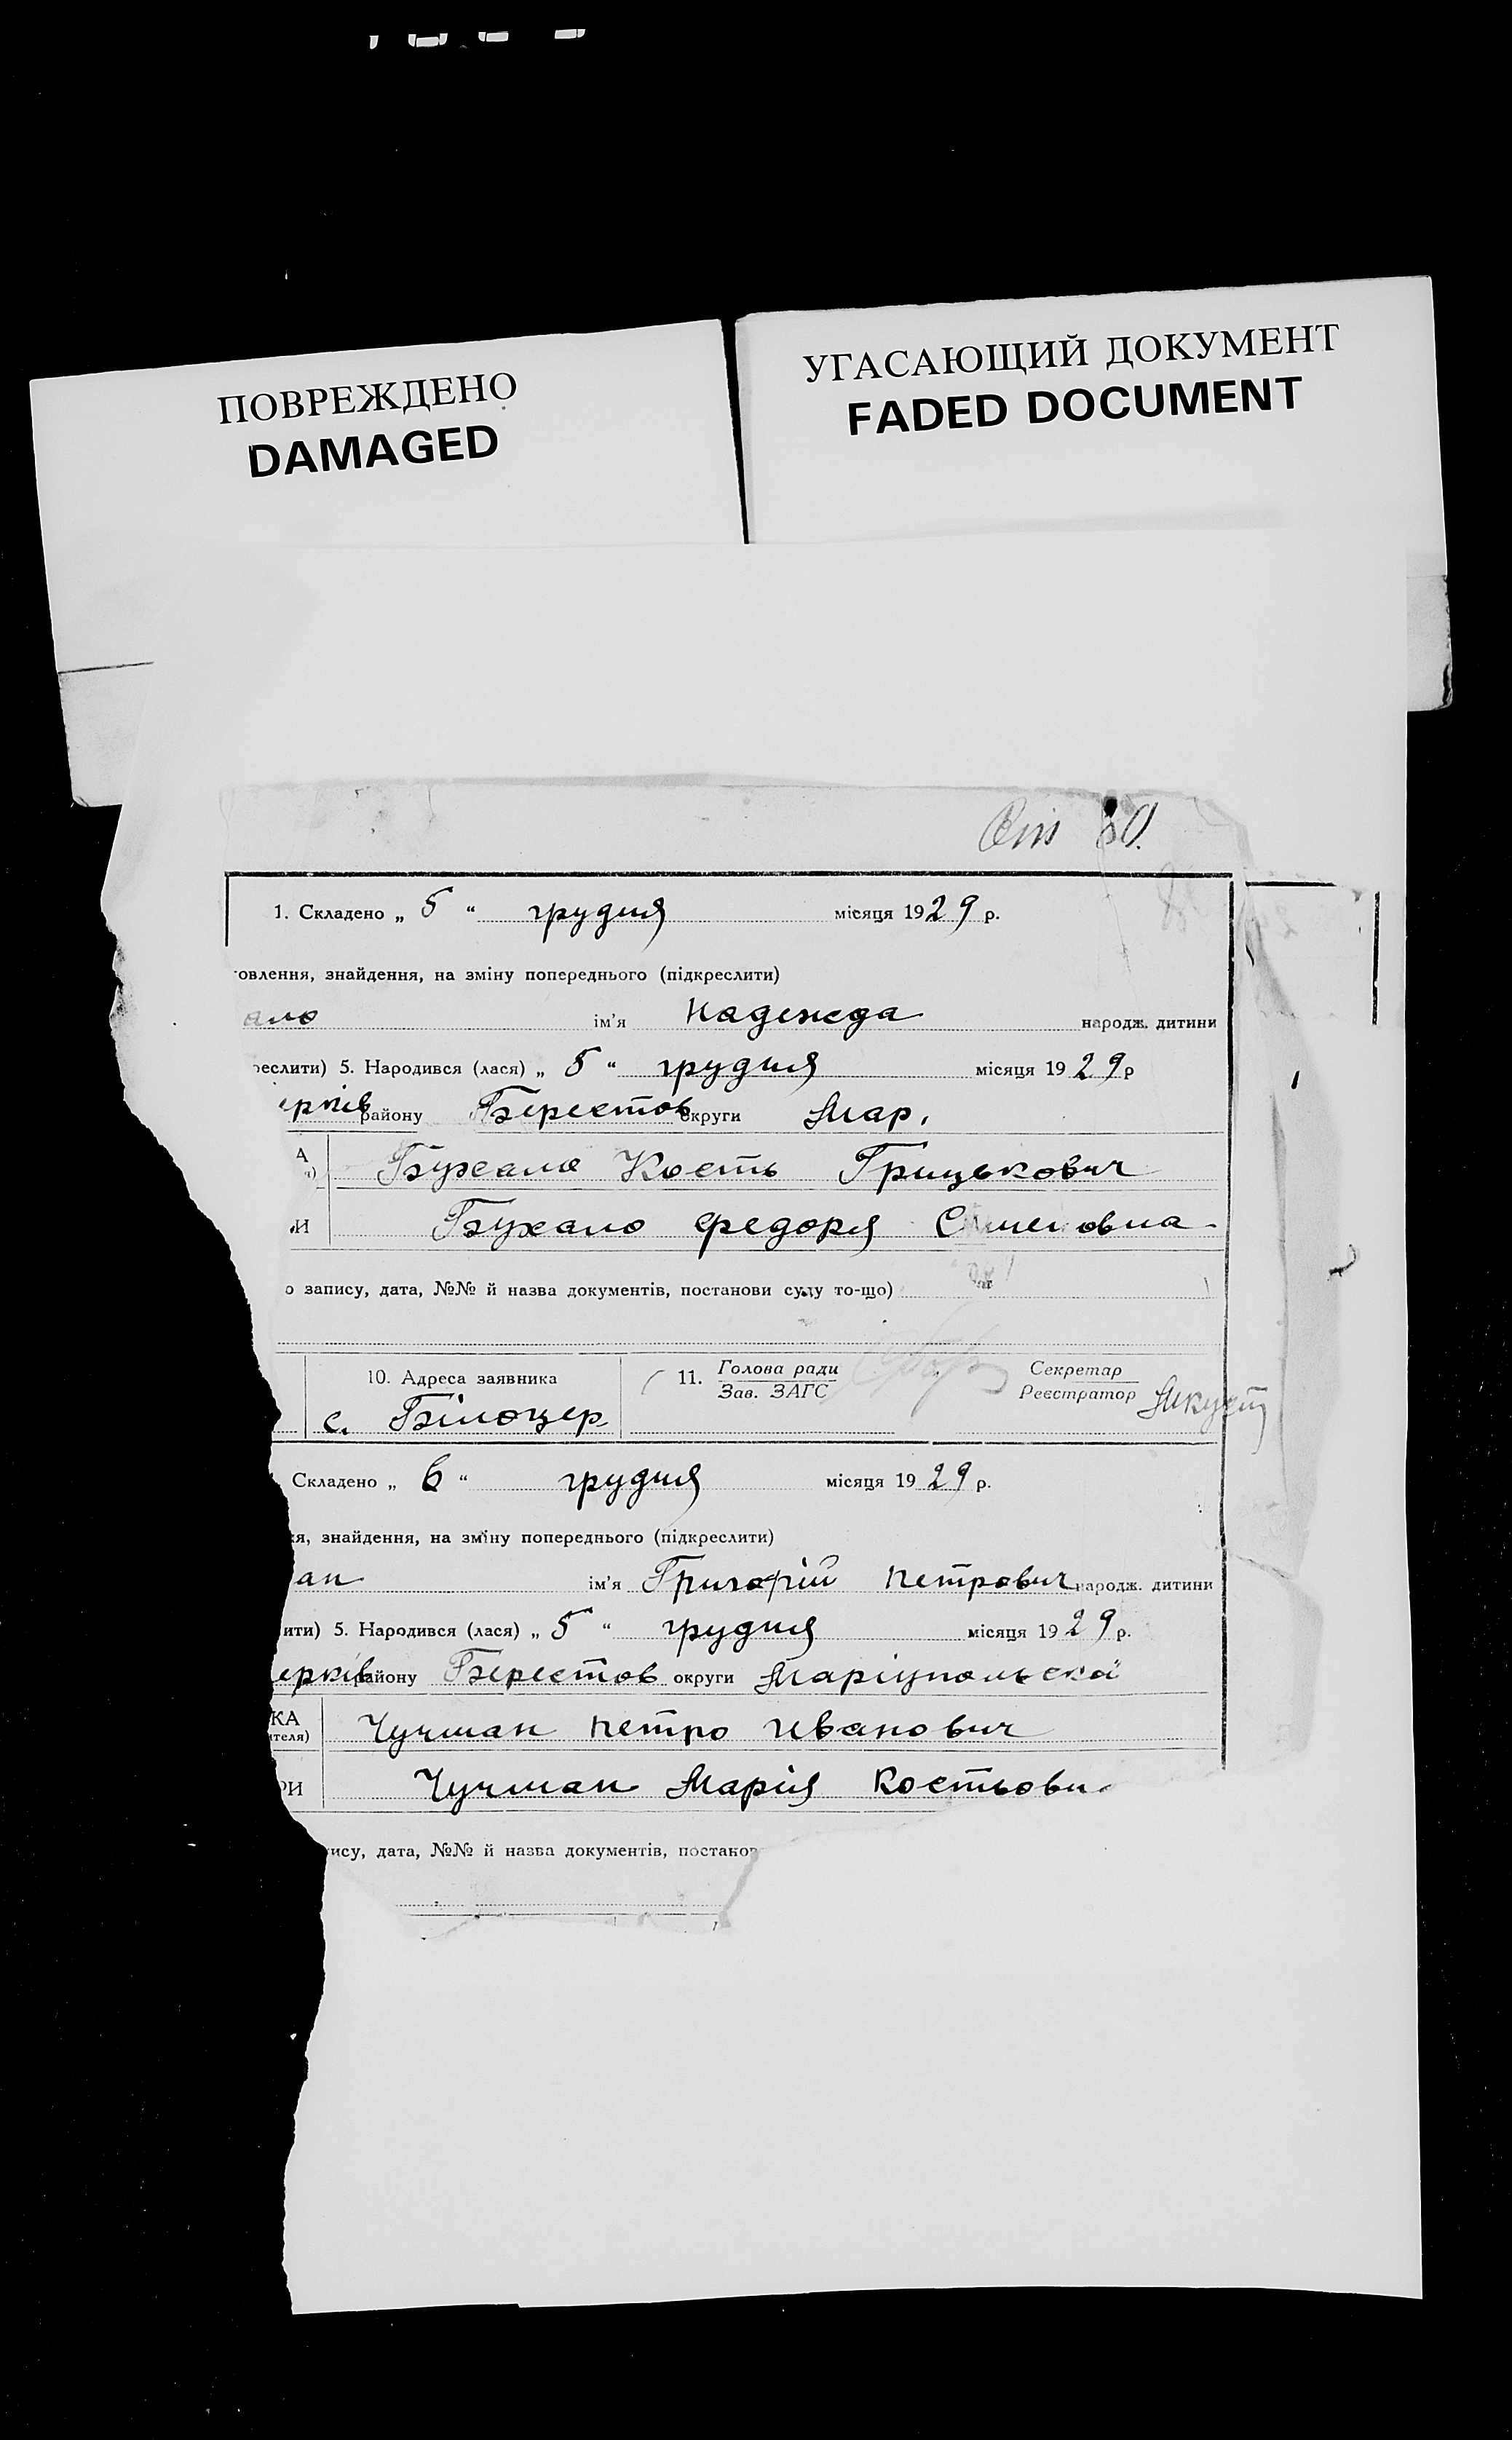 ПОВРЕЖДЕНО
DAMAGED
УГАСАЮЩИЙ ДОКУМЕНТ
FADED DOCUMENT
80.
1. Складено „ 5 “ грудня місяця 1929 р.
овлення, знайдення, на зміну попереднього (підкреслити)
ало ім'я Надежда народж. дитини
реслити) 5. Народився (лася) „ 5 “ грудня місяця 1929 р
ерків району Берестов округи Мар.
А Бухало Кость Грицькович
И Бухало Федоря
о запису, дата, №№ й назва документів, постанови суду то-що)
10. Адреса заявника
с. Білоцер
11. Голова ради
Зав. ЗАГС
Секретар
Реєстратор
Складено „ 6 “ грудня місяця 1929 р.
я, знайдення, на зміну попереднього (підкреслити)
ан ім'я Григорій Петрович народж. дитини
ити) 5. Народився (лася) „ 5 “ грудня місяця 1929 р.
ерків району Берестов округи Маріупольскої
КА
ителя) Чучман Петро Иванович
РИ Чучман Марія Костьовн
ису, дата, №№ й назва документів, постанов